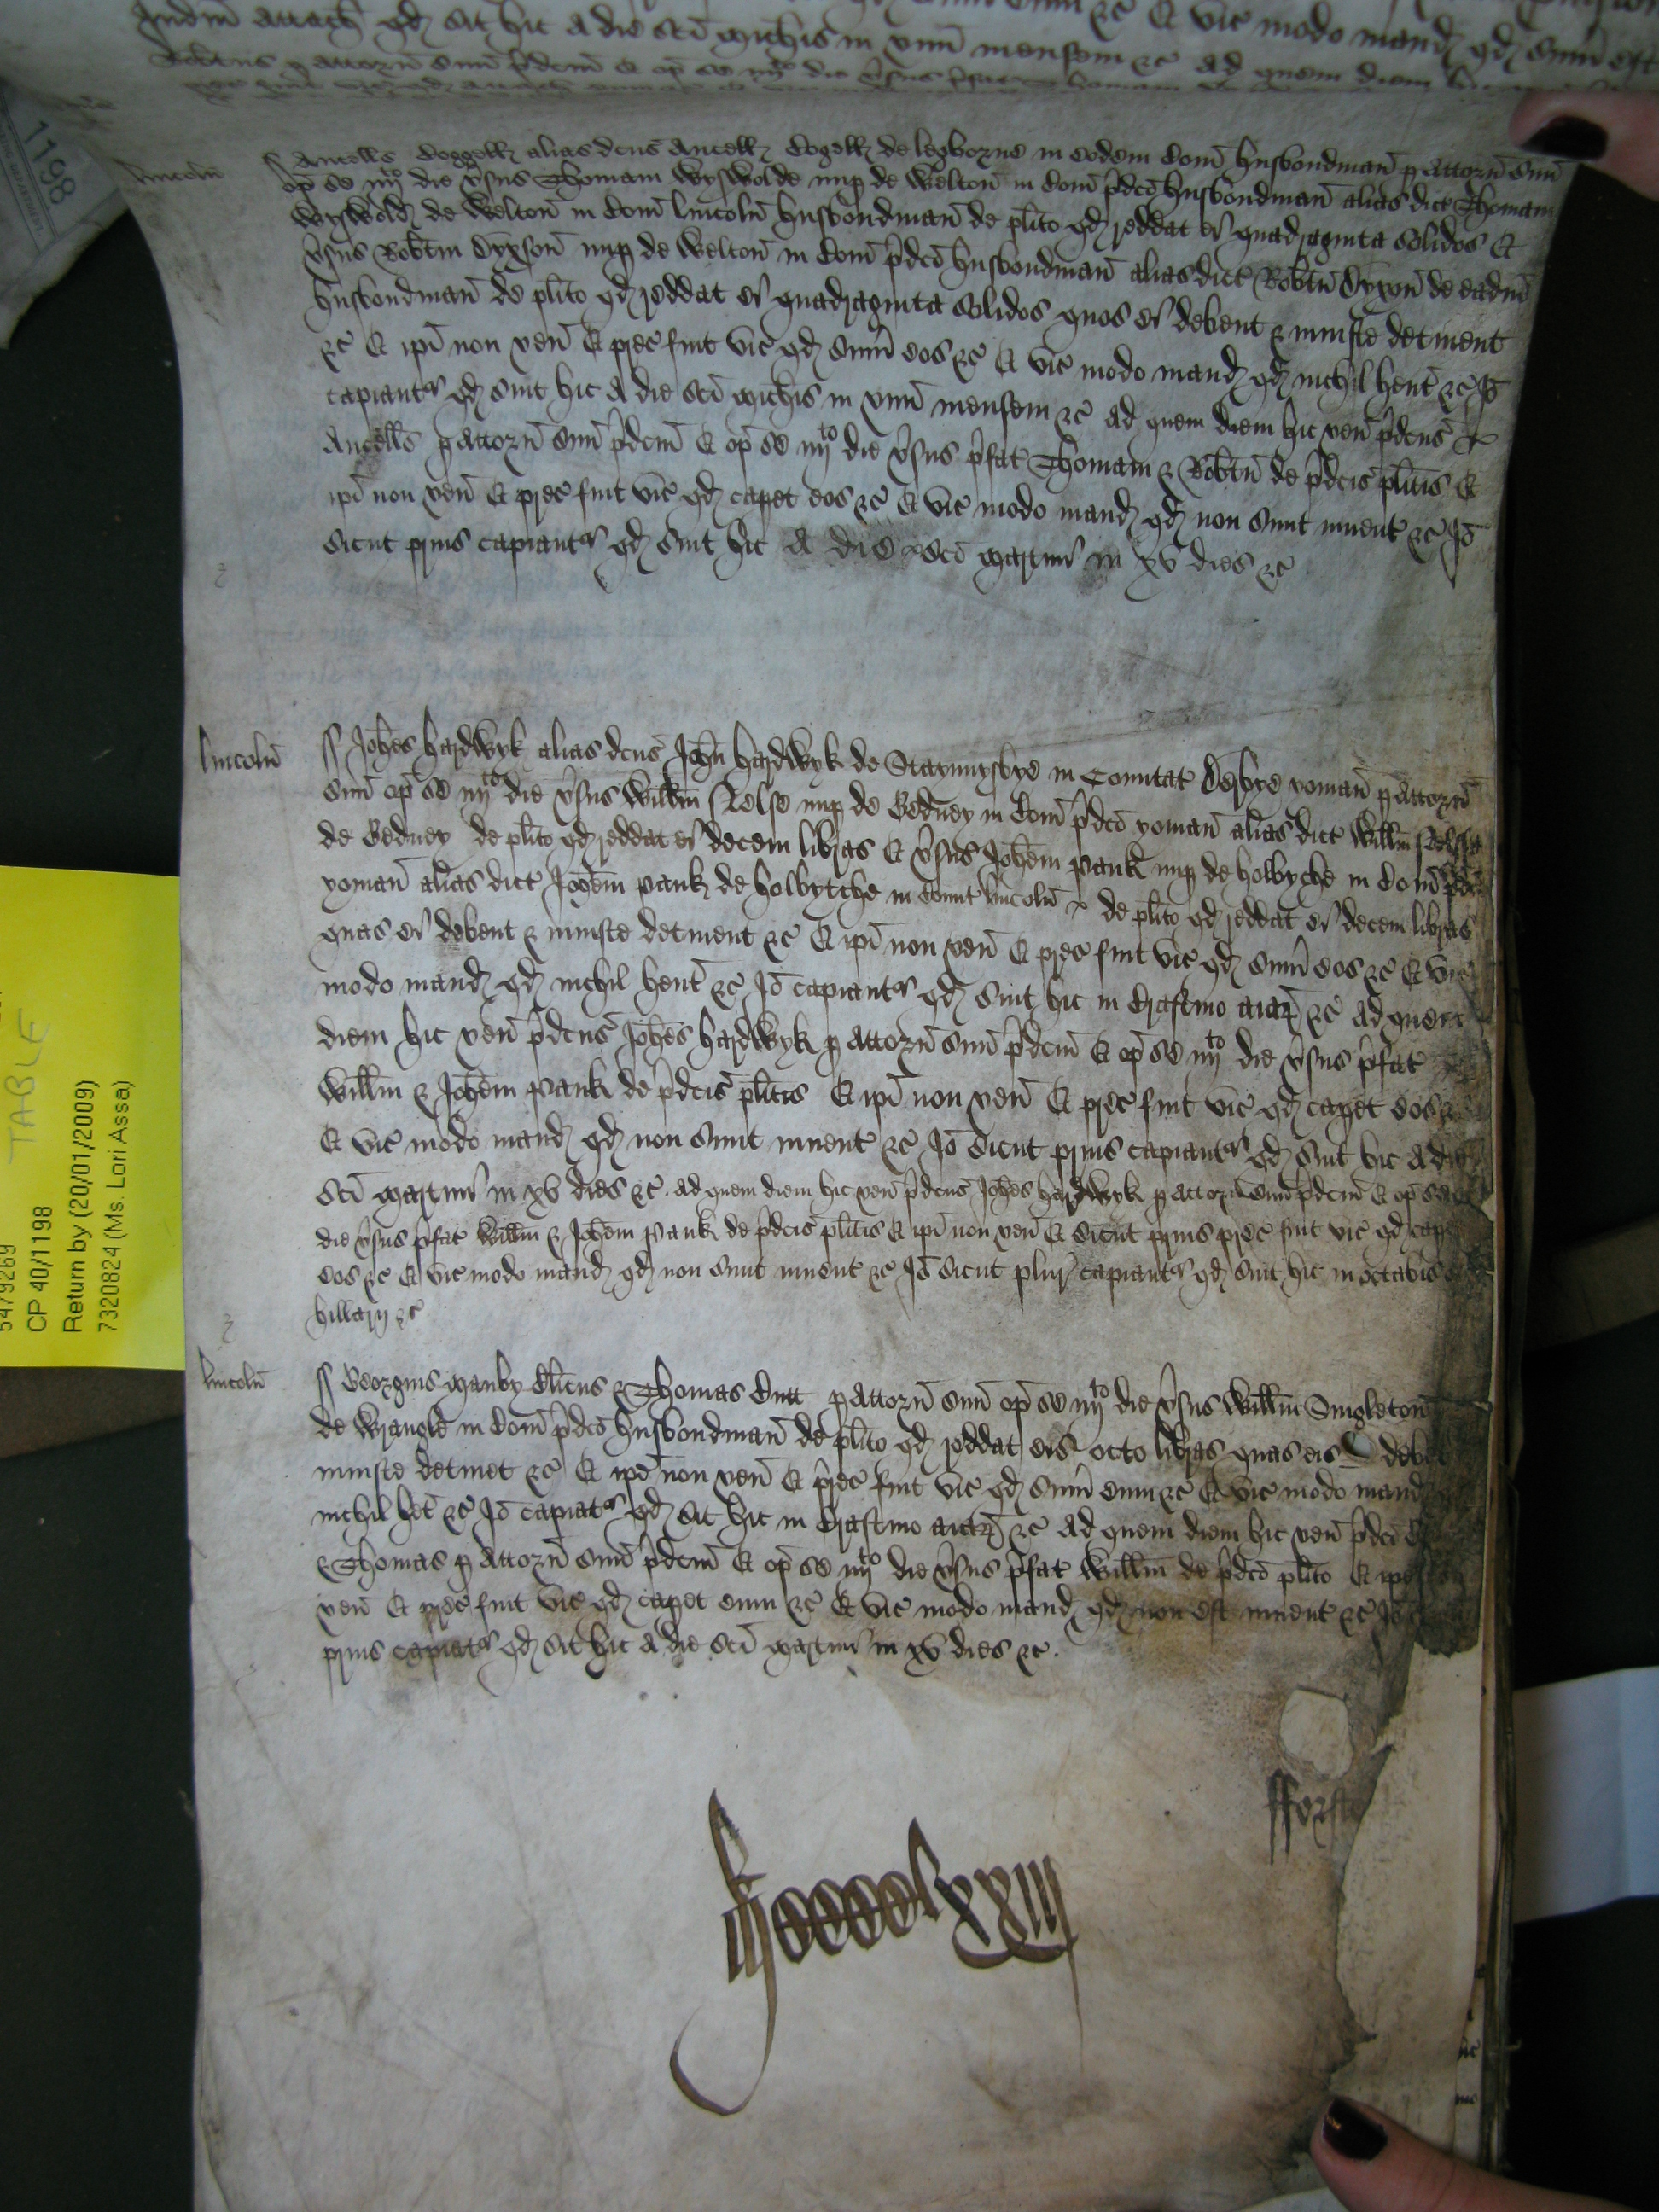 Judm attach qd sit hic a die sci Michis in unu mensem &c
& vic modo mand qd sum est
Robtus p attorn suu pdcm & op se iiijto die vsus
1198
lincoln
ss Ancells Doggell alias dcus Ancell Dogell de legborne in eodem Com husbondman p Attorn suu
op se iiijto die vsus Thomam Wyswolde nup de Welton in Com pdco husbondman alias dict Thomam
Wyswold de Welton in Com lincoln husbondman de plito qd reddat ei quadraginta solidos Et
vsus Robtm Dyxson nup de Welton in Com pdco husbondman alias dict Robtu Dyxon de eadm
husbondman de plito qd reddat ei quadraginta solidos quos ei debent & iniuste detinent
&c Et ipi non ven Et prec fuit vic qd sum eos &c Et vic modo mand qd nichil hent &c Io
capiantr qd sint hic a die sci Michis in unu mensem &c ad quem diem hic ven pdcus
Ancells p Attorn suu pdcm Et op se iiijto die vsus pfat Thomam & Robtu de pdcis plitis Et
ipi non ven Et prec fuit vic qd capet eos &c Et vic modo mand qd non sunt invent &c Io
sicut prius capiantr qd sint hic a die sci Martini in xv dies &c
lincoln
ss Johes hardwyk alias dcus John hardwyk de Stayunysbye in Comitat Derbye yoman p Attorn
suu op se iiijto die vsus Willm Relse nup de Gedney in Com pdco yoman alias dict Willm
de Gedney de plito qd reddat ei decem libras Et vsus Johem Pank nup de holbyche in Com pdco
yoman alias dict Johem Pank de holbytche in Comit lincoln de plito qd reddat ei decem libras
quas ei debent & iniuste detinent &c Et ipi non ven Et prec fuit vic qd sum eos &c Et vic
modo mand qd nichil hent &c Io capiantr qd sint hic in Crastino aiar &c ad quem
diem hic ven pdcus Johes hardwyk p Attorn suu pdcm Et op se iiijto die vsus pfat
Willm & Johem Pank de pdcis plitis Et ipi non ven Et prec fuit vic qd capet eos &c
Et vic modo mand qd non sunt invent &c Io sicut prius capiantr qd sint hic a die
sci Martini in xv dies &c. ad quem diem hic ven pdcus Johes hardwyk p attorn suu pdcm & op se
die vsus pfat Willm & Johem Pank de pdcis plitis & ipi non ven & sicut prius prec fuit vic qd capet
eos &c Et vic modo mand qd non sunt invent &c Io sicut plur capiantr qd sint hic in octabis
hillarij &c
lincoln
ss Georgius Manby Clicus & Thomas Cutt p Attorn suu op se iiijto die vsus Willm Singleton
de Wrangle in Com pdco husbondman de plito qd reddat eis octo libras quas eis debet
iniuste detinet &c Et ipe non ven Et prec fuit vic qd sum eum &c Et vic modo mand
nichil het &c Io capiatr qd sit hic in Crastino aiar &c ad quem diem hic ven pdci
& Thomas p Attorn suu pdcm Et op se iiijto die vsus pfat Willm de pdco plito Et ipe
ven Et prec fuit vic qd capet eum &c Et vic modo mand qd non est invent &c Io
prius capiatr qd sit hic a die sci Martini in xv dies &c.
fforste
CP 40/1198
Return by (20/01/2009)
7320824 (Ms. Lori Assa)
TABLE